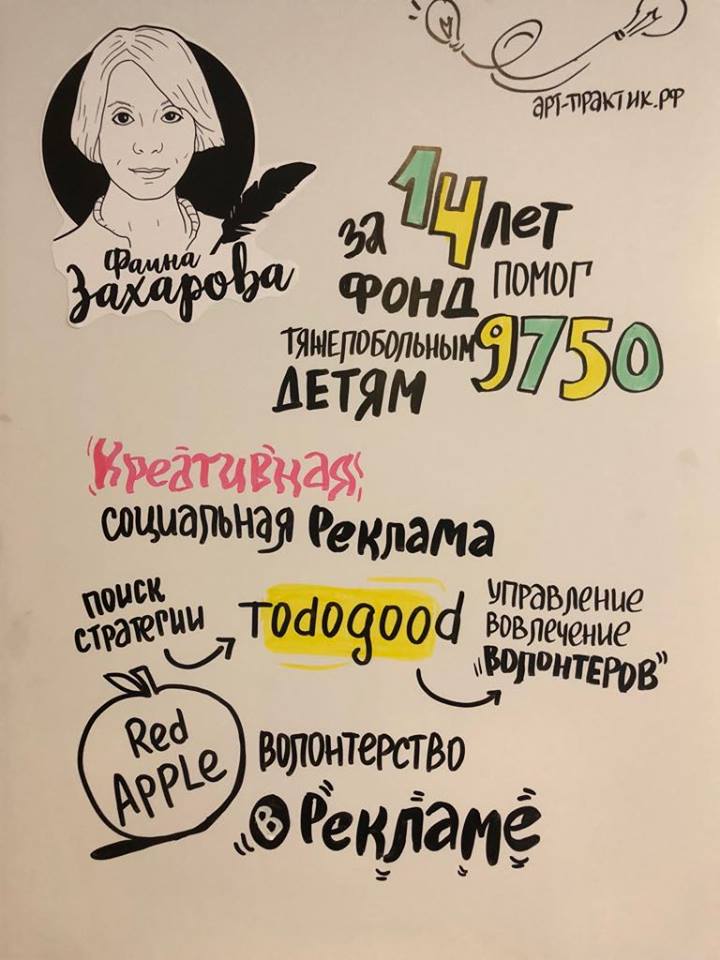 арт-практик.рф
Фаина
Захарова
за 14 лет
фонд помог
тяжелобольным 9750
детям
Креативная
социальная реклама
поиск
стратегии
Todogood
управление
вовлечение
"волонтеров"
Red
Apple
волонтерство
"в рекламе